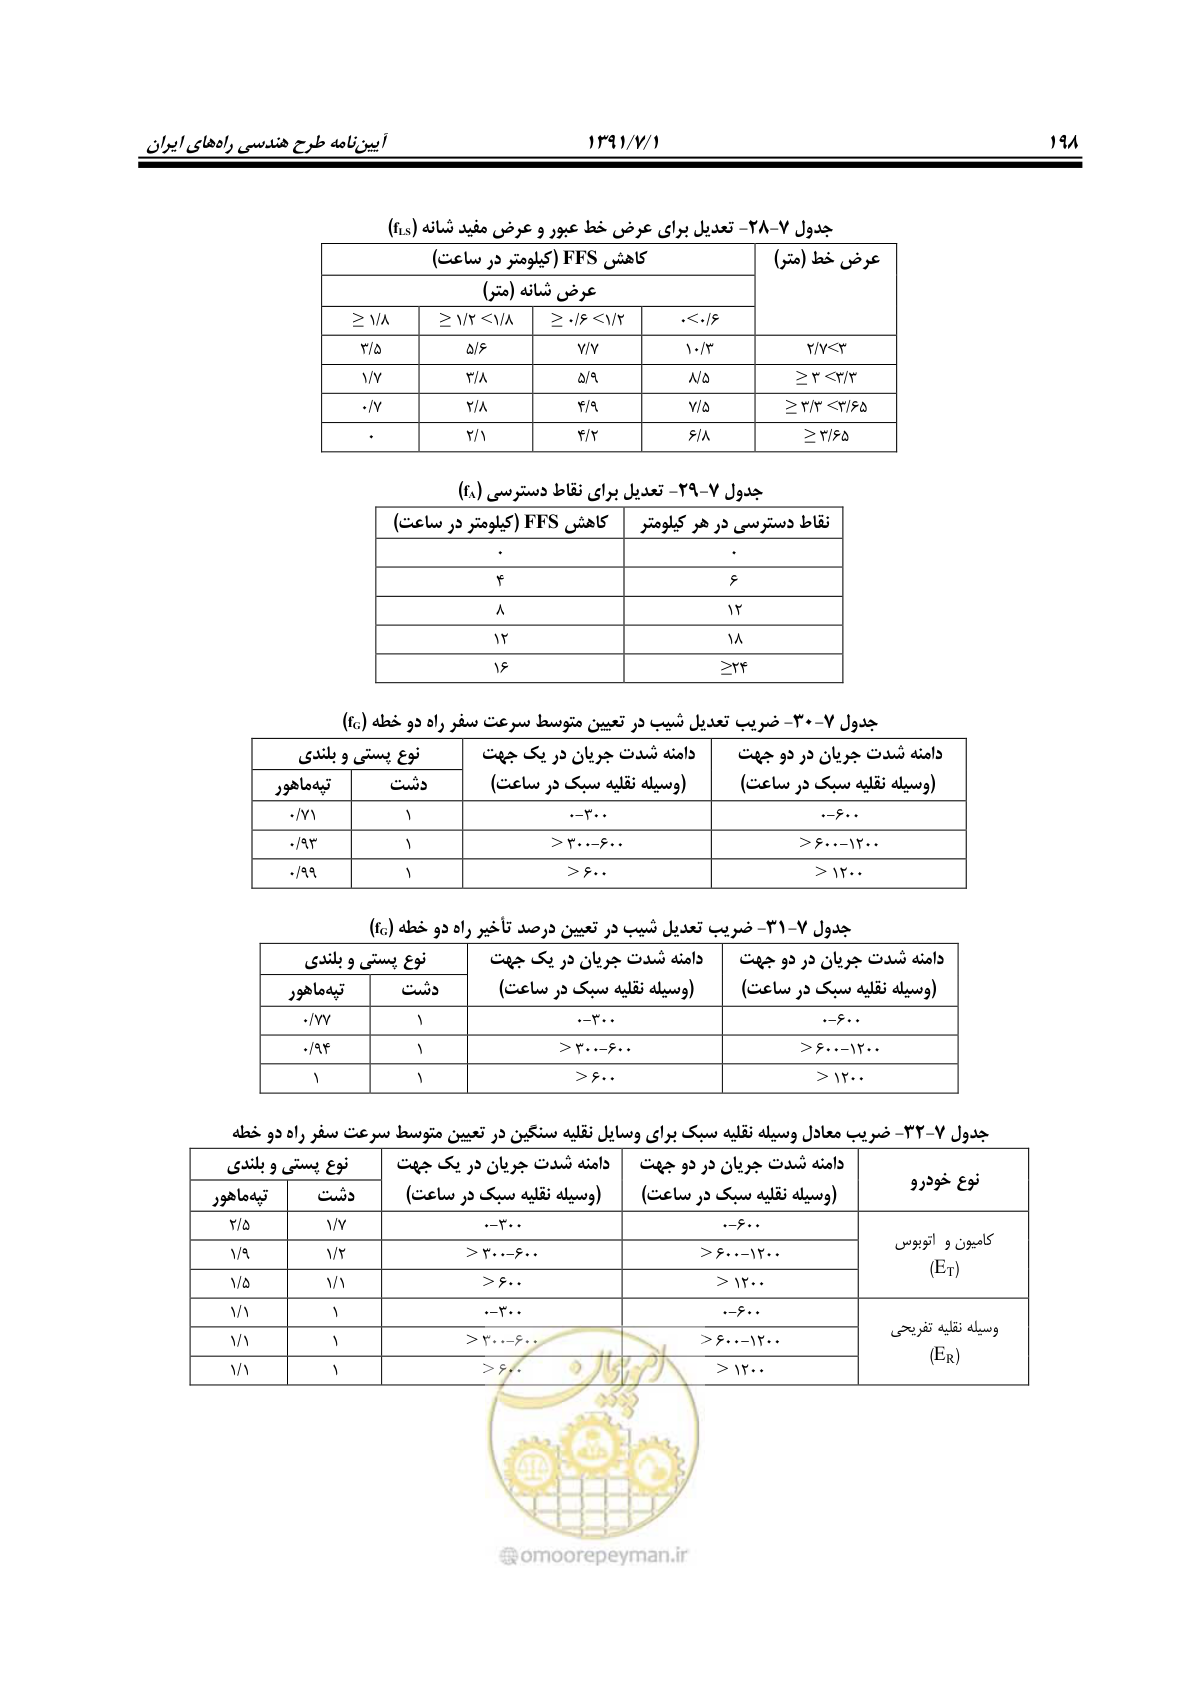 ۱۹۸ ۱۳۹۱/۷/۱ آیین‌نامه طرح هندسی راه‌های ایران
جدول ۷-۲۸- تعدیل برای عرض خط عبور و عرض مفید شانه (fLS)
عرض خط (متر) کاهش FFS (کیلومتر در ساعت)
عرض شانه (متر)
۰<۰/۶ ≥ ۰/۶ <۱/۲ ≥ ۱/۲ <۱/۸ ≥ ۱/۸
۲/۷<۳ ۱۰/۳ ۷/۷ ۵/۶ ۳/۵
≥ ۳ <۳/۳ ۸/۵ ۵/۹ ۳/۸ ۱/۷
≥ ۳/۳ <۳/۶۵ ۷/۵ ۴/۹ ۲/۸ ۰/۷
≥ ۳/۶۵ ۶/۸ ۴/۲ ۲/۱ ۰
جدول ۷-۲۹- تعدیل برای نقاط دسترسی (fA)
نقاط دسترسی در هر کیلومتر کاهش FFS (کیلومتر در ساعت)
۰ ۰
۶ ۴
۱۲ ۸
۱۸ ۱۲
≥۲۴ ۱۶
جدول ۷-۳۰- ضریب تعدیل شیب در تعیین متوسط سرعت سفر راه دو خطه (fG)
دامنه شدت جریان در دو جهت دامنه شدت جریان در یک جهت نوع پستی و بلندی
(وسیله نقلیه سبک در ساعت) (وسیله نقلیه سبک در ساعت) دشت تپه‌ماهور
۰-۶۰۰ ۰-۳۰۰ ۱ ۰/۷۱
> ۶۰۰-۱۲۰۰ > ۳۰۰-۶۰۰ ۱ ۰/۹۳
> ۱۲۰۰ > ۶۰۰ ۱ ۰/۹۹
جدول ۷-۳۱- ضریب تعدیل شیب در تعیین درصد تأخیر راه دو خطه (fG)
دامنه شدت جریان در دو جهت دامنه شدت جریان در یک جهت نوع پستی و بلندی
(وسیله نقلیه سبک در ساعت) (وسیله نقلیه سبک در ساعت) دشت تپه‌ماهور
۰-۶۰۰ ۰-۳۰۰ ۱ ۰/۷۷
> ۶۰۰-۱۲۰۰ > ۳۰۰-۶۰۰ ۱ ۰/۹۴
> ۱۲۰۰ > ۶۰۰ ۱ ۱
جدول ۷-۳۲- ضریب معادل وسیله نقلیه سبک برای وسایل نقلیه سنگین در تعیین متوسط سرعت سفر راه دو خطه
نوع خودرو دامنه شدت جریان در دو جهت دامنه شدت جریان در یک جهت نوع پستی و بلندی
(وسیله نقلیه سبک در ساعت) (وسیله نقلیه سبک در ساعت) دشت تپه‌ماهور
کامیون و اتوبوس
(ET)
۰-۶۰۰ ۰-۳۰۰ ۱/۷ ۲/۵
> ۶۰۰-۱۲۰۰ > ۳۰۰-۶۰۰ ۱/۲ ۱/۹
> ۱۲۰۰ > ۶۰۰ ۱/۱ ۱/۵
وسیله نقلیه تفریحی
(ER)
۰-۶۰۰ ۰-۳۰۰ ۱ ۱/۱
> ۶۰۰-۱۲۰۰ > ۳۰۰-۶۰۰ ۱ ۱/۱
> ۱۲۰۰ > ۶۰۰ ۱ ۱/۱
امور پیمان
@omoorepeyman.ir